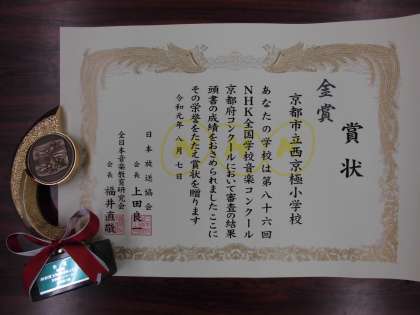 賞状
金賞
京都市立西京極小学校
あなたの学校は第八十六回
NHK全国学校音楽コンクール
京都府コンクールにおいて審査の結果
頭書の成績をおさめられました ここに
その栄誉をたたえ賞状を贈ります
令和元年 八月 七日
日本放送協会
会長 上田良一
全日本音楽教育研究会
会長 福井直敬